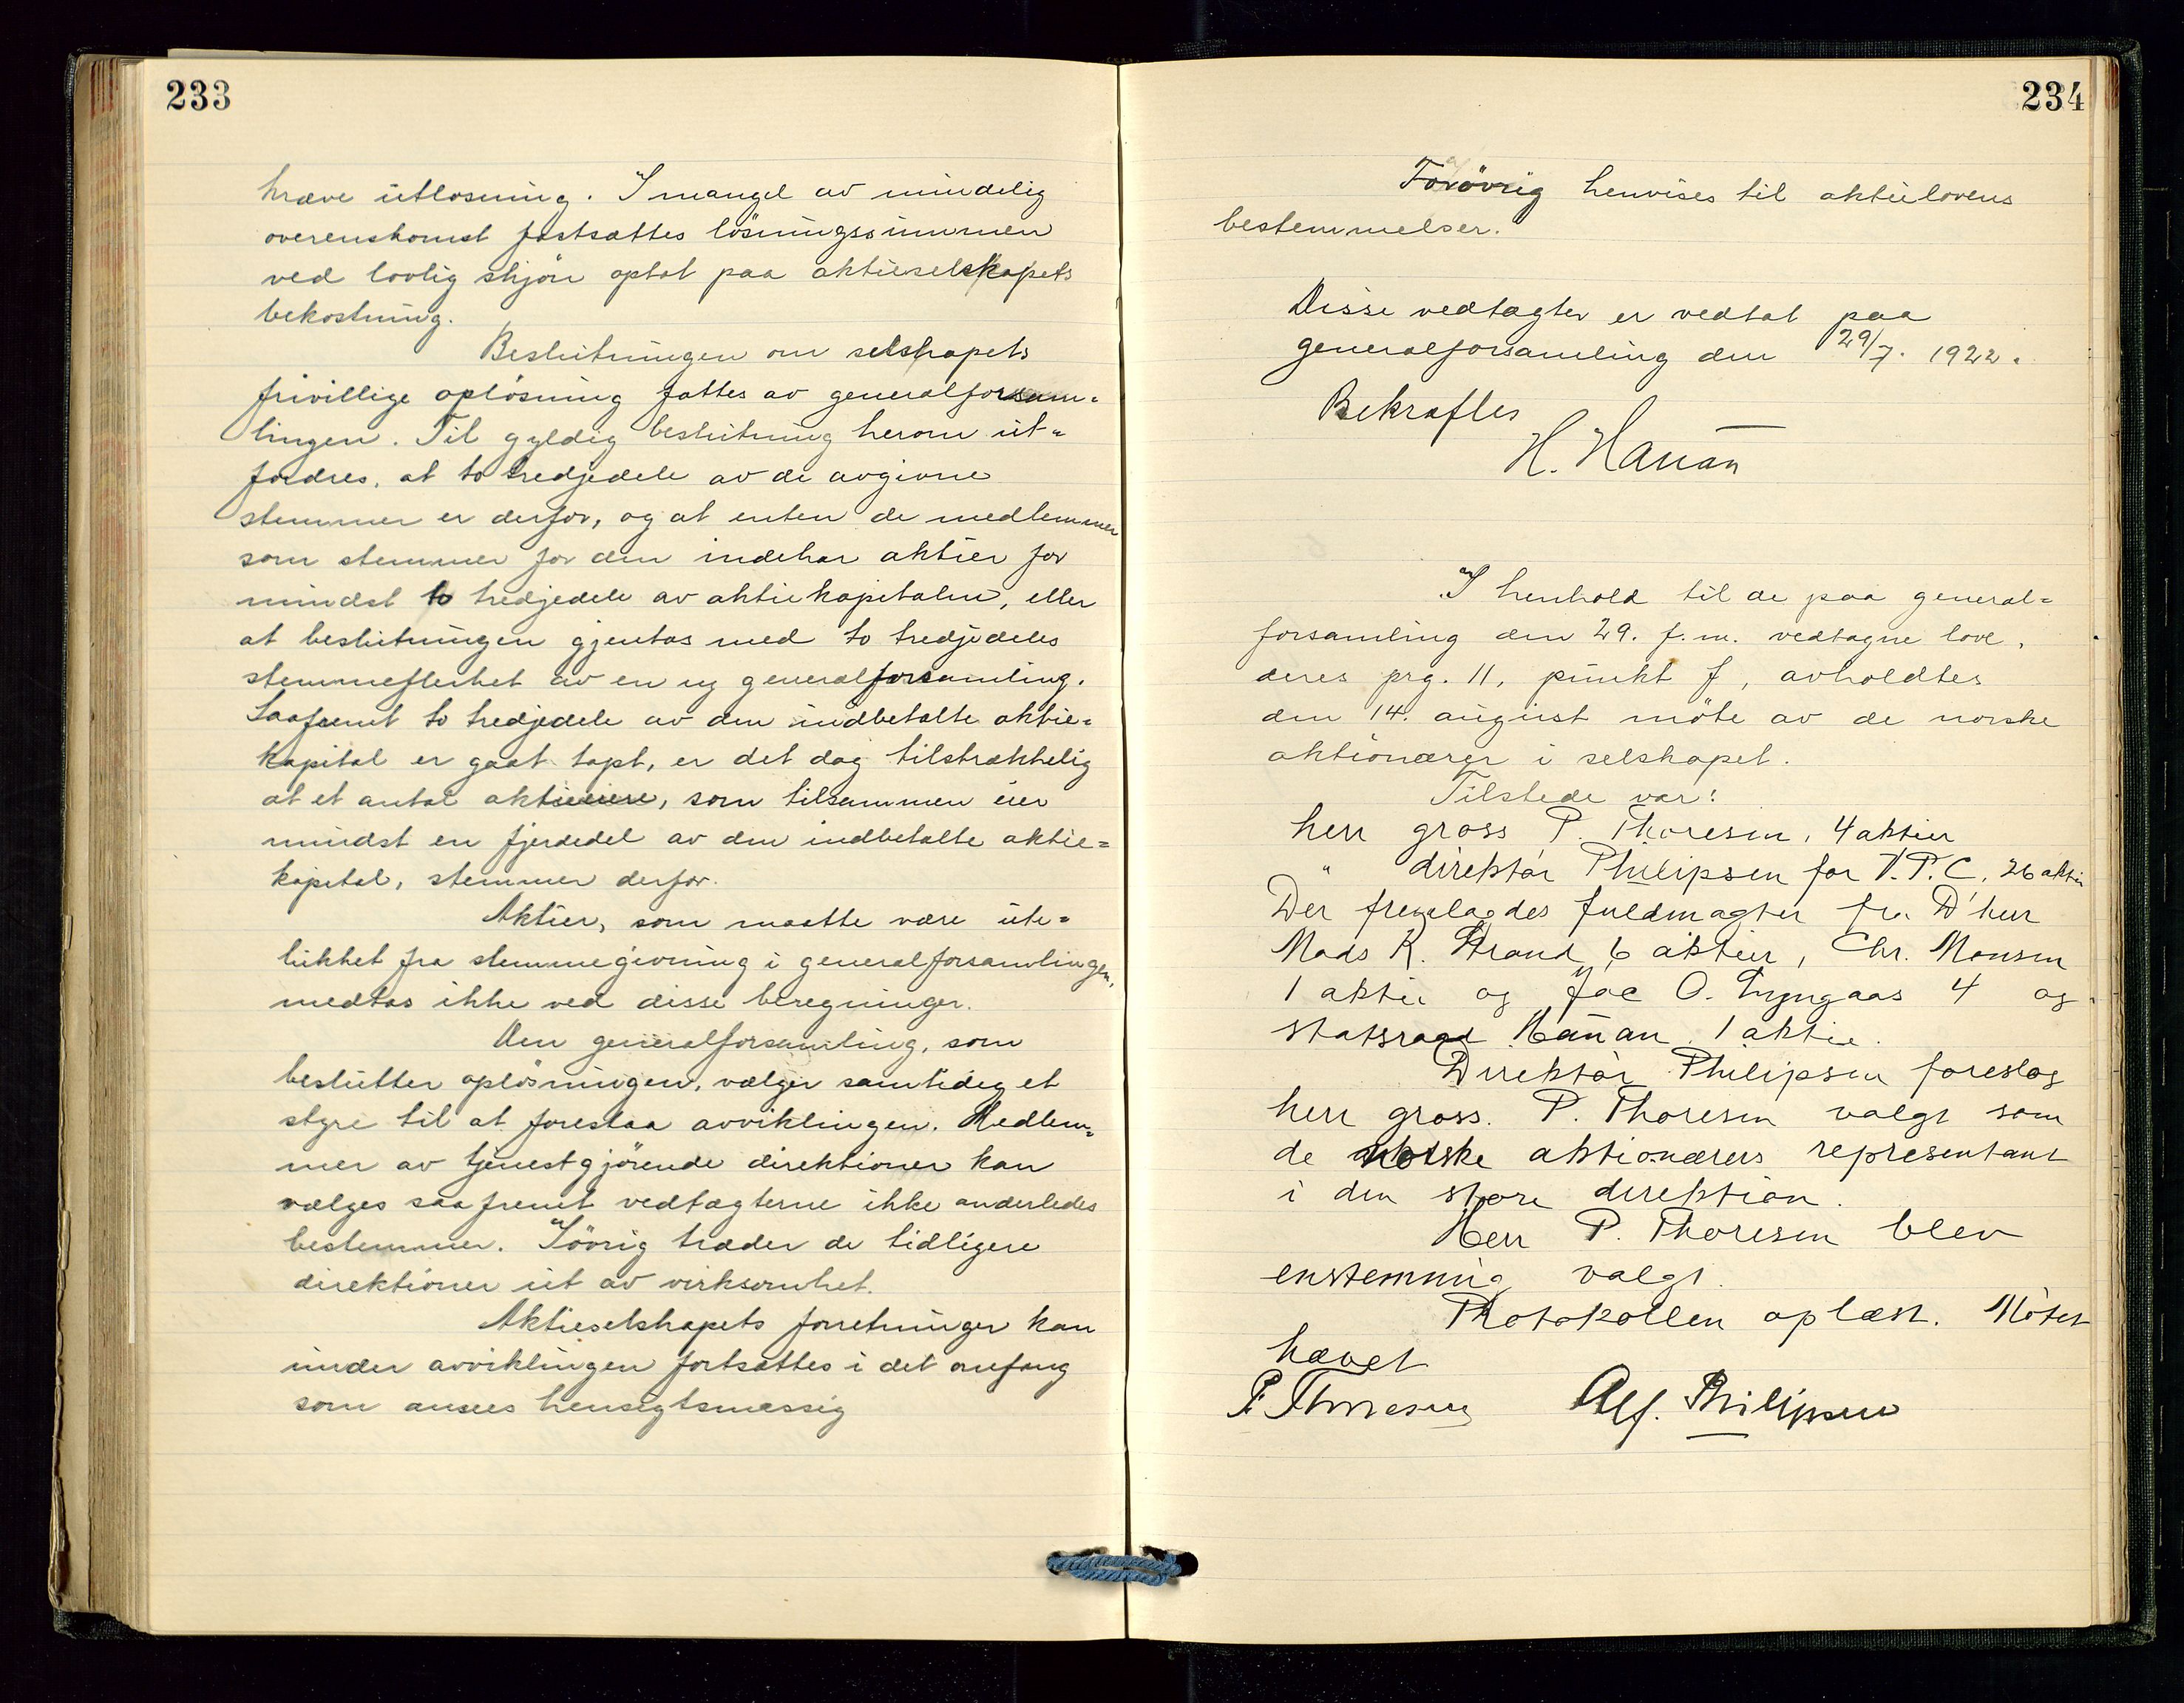 233
kræve utløsning. I mangel av mindelig
overenskomst fastsættes lösningssummen
ved lovlig skjön optat paa aktieselskapets
bekostning.
Beslutningen om selskapets
frivillige oplösning fattes av generalforsam=
lingen. Til gyldig beslutning herom ut=
fordres, at to tredjedele av de avgivne
stemmer er derfor, og at enten de medlemmer
som stemmer for den indehar aktier for
mindst to tredjedele av aktiekapitalen, eller
at beslutningen gjentas med to tredjedeles
stemmeflerhet av en ny generalforsamling.
Saafremt to tredjedele av den indbetalte aktie=
kapital er gaat tapt, er det dog tilstrækkelig
at et antal aktieeiere, som tilsammen eier
mindst en fjerdedel av den indbetalte aktie=
kapital, stemmer derfor.
Aktier, som maatte være ute=
lukket fra stemmegivning i generalforsamlingen,
medtas ikke ved disse beregninger.
Den generalforsamling, som
beslutter oplösningen, vælger samtidig et
styre til at forestaa avviklingen. Medlem=
mer av tjenestgjörende direktioner kan
vælges saafremt vedtægterne ikke anderledes
bestemmer. Iövrig træder de tidligere
direktioner ut av virksomhet.
Aktieselskapets forretninger kan
under avviklingen fortsættes i det omfang
som ansees hensigtsmæssig
234
Forövrig henvises til aktielovens
bestemmelser.
Disse vedtægter er vedtat paa
generalforsamling den 29/7. 1922.
Bekræftes
H. Hauan
I henhold til de paa general=
forsamling den 29. f.m. vedtagne love,
deres prg. 11, punkt f, avholdtes
den 14. august möte av de norske
aktionærer i selskapet.
Tilstede var:
herr gross P. Thoresen, 4 aktier
" direktør Philipsen for V.P.C. 26 aktier
Der fremlagdes fuldmagter fra D'herr
Mads K. Strand 6 aktier, Chr. Monsen
1 aktie og Jac O. Lyngaas 4 og
statsraad Hauan 1 aktie.
Direktør Philipsen foreslog
herr gross. P. Thoresen valgt som
de norske aktionærers representant
i den store direktion.
Herr P. Thoresen blev
enstemmig valgt.
Protokollen oplæst. Mötet
hævet
P. Thoresen Alf. Philipsen